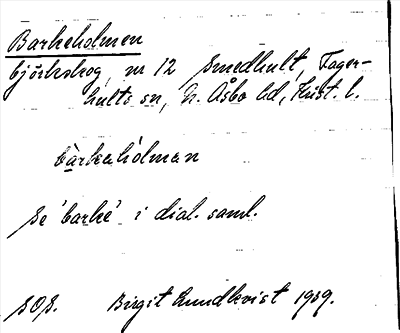 Barkeholmen
björkskog, nr 12 Smedhult, Fager-
hults sn, N. Åsbo hd, Krist. l.
bàrkəhòlmən
se 'barke' i dial. saml.
SOS. Birgit Lundkvist 1939.